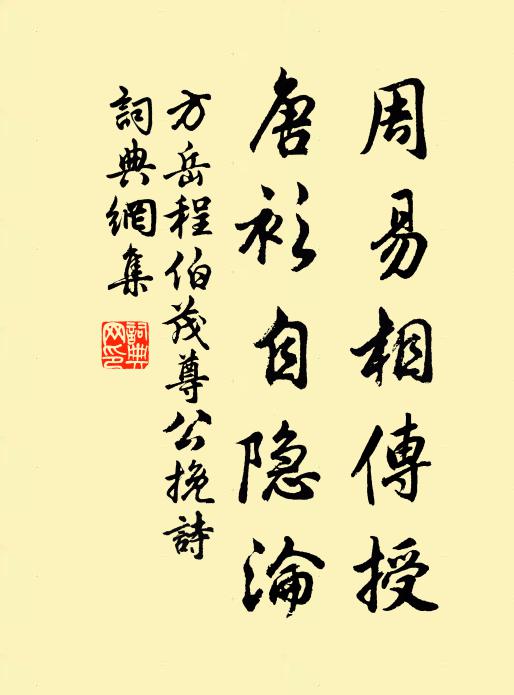 周易相傳授
唐衫自隐淪
方岳程伯茂尊公挽詩
詞典網集
詞典網印